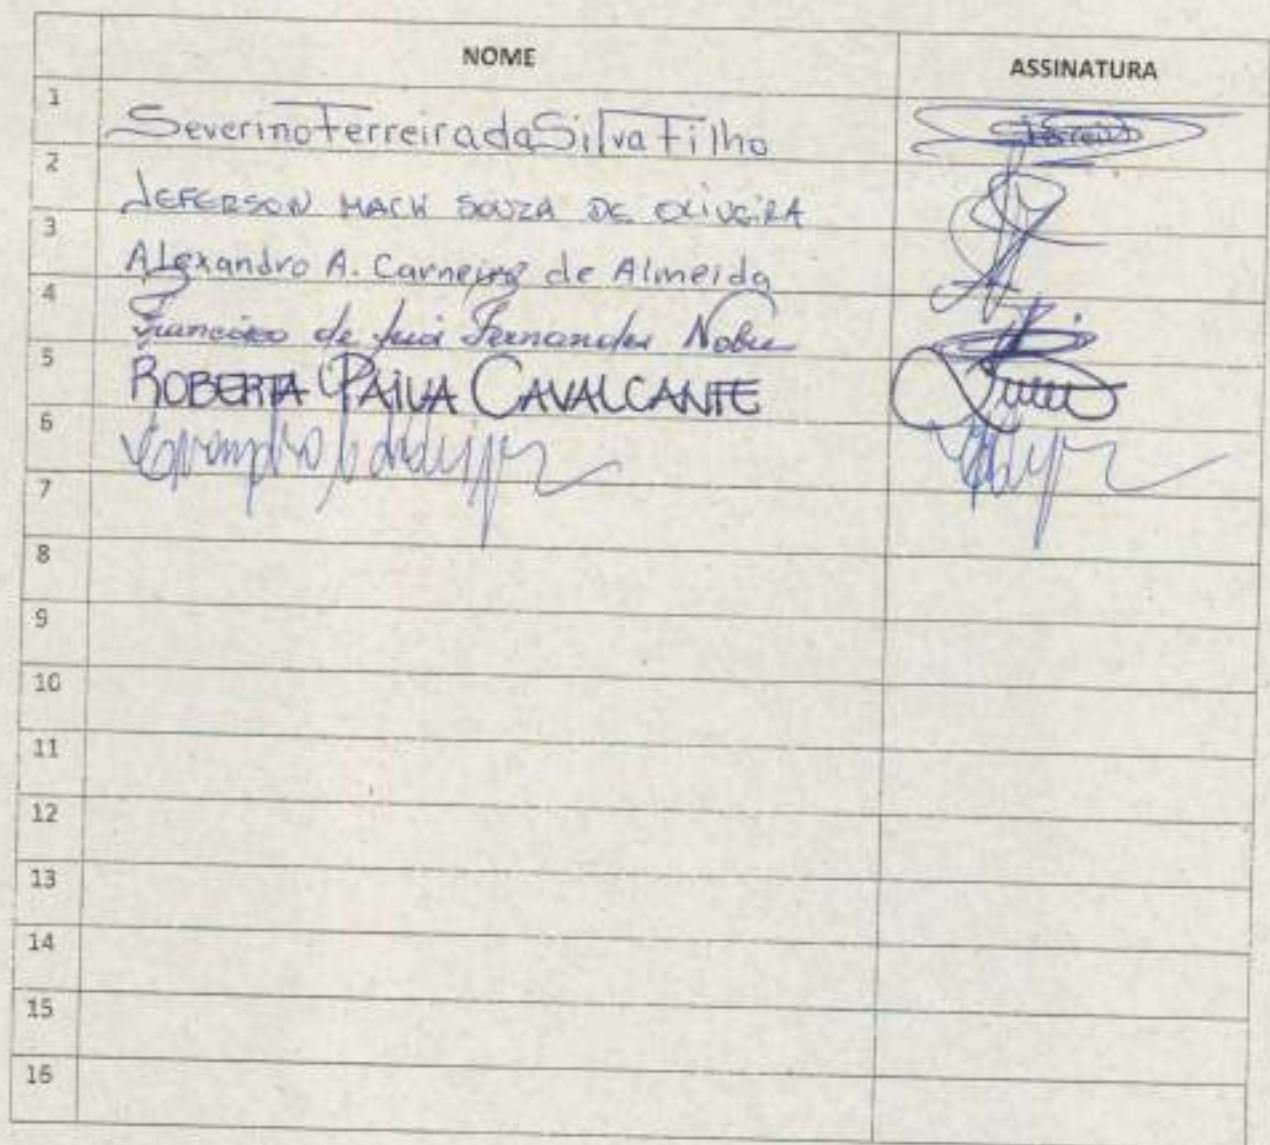 NOME ASSINATURA
1 Severino Ferreira da Silva Filho Ferreira
2 JEFERSON MACK SOUZA DE OLIVEIRA
3 Alexandro A. Carneiro de Almeida
4 Francisco de Luis Fernandes Nobre
5 ROBERTA PAIVA CAVALCANTE
6
7
8
9
10
11
12
13
14
15
16